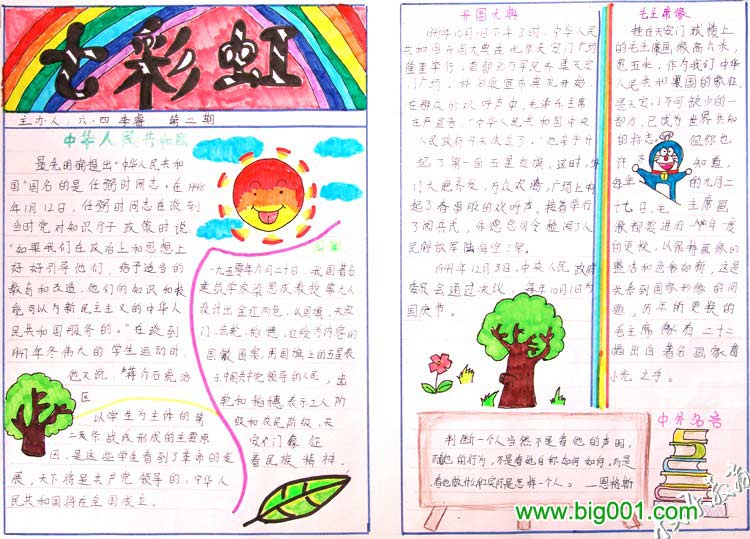 七彩虹
主办人：六·四 李睿 第二期
中华人民共和国
最先明确提出“中华人民共和
国”国名的是任弼时同志。在1948
年1月12日，任弼时同志在谈到
当时党对知识分子政策时说：
“如果我们在政治上和思想上
好好引导他们，给予适当的
教育和改造，他们的知识和技
能可以为新民主主义的中华人
民共和国服务的。”在谈到
1947年冬伟大的学生运动时，
他又说：“蒋介石统治
区
以学生为主体的第
二条战线形成的主要原
因，是这些学生看到了革命的发
展，天下将是共产党领导的，中华人
民共和国将在全国成立。
一九五零年六月二十日，我国著名
建筑学家梁思成教授等九人
设计出金红两色，以国旗、天安
门、齿轮、稻穗、红绶为内容的
国徽图案，用国旗上的五星表
示中国共产党领导的人民，齿
轮和稻穗表示工人阶
级和农民阶级，天
安门象征
着民族精神。
开国大典
1949年10月1日下午3时，中华人民
共和国开国大典在北京天安门广场
隆重举行。首都30万军民齐集天安
门广场，林伯渠宣布典礼开始，
在群众的欢呼声中，毛泽东主席
庄严宣告：“中华人民共和国中央
人民政府今天成立了。”他亲手升
起了第一面五星红旗，这时，
门大炮齐发，万众欢腾，广场上响
起了春雷般的欢呼声。接着举行
了阅兵式，朱德总司令检阅了人
民解放军陆海空三军。
1949年12月3日，中央人民政府
委员会通过决议，每年10月1日为
国庆节。
毛主席像
挂在天安门城楼上
的毛主席画像高六米，
宽五米，作为我们中华
人民共和国的象征，
是天安门不可缺少的一
部分，已成为世界共知
的标志。但你也
许不知道，
每年的九月二
十七日，毛主席画
像都要进行一年一度
的更换，以保持画像的
整洁和色彩如新，这是
关系到国家形象的问
题。历年所更换的
毛主席像有二十二
幅出自著名画家葛
小光之手。
中外名言
判断一个人当然不是看他的声明，
而是他的行为，不是看他自称如何如何，而是
看他做什么和实际是怎样一个人。——恩格斯
www.big001.com